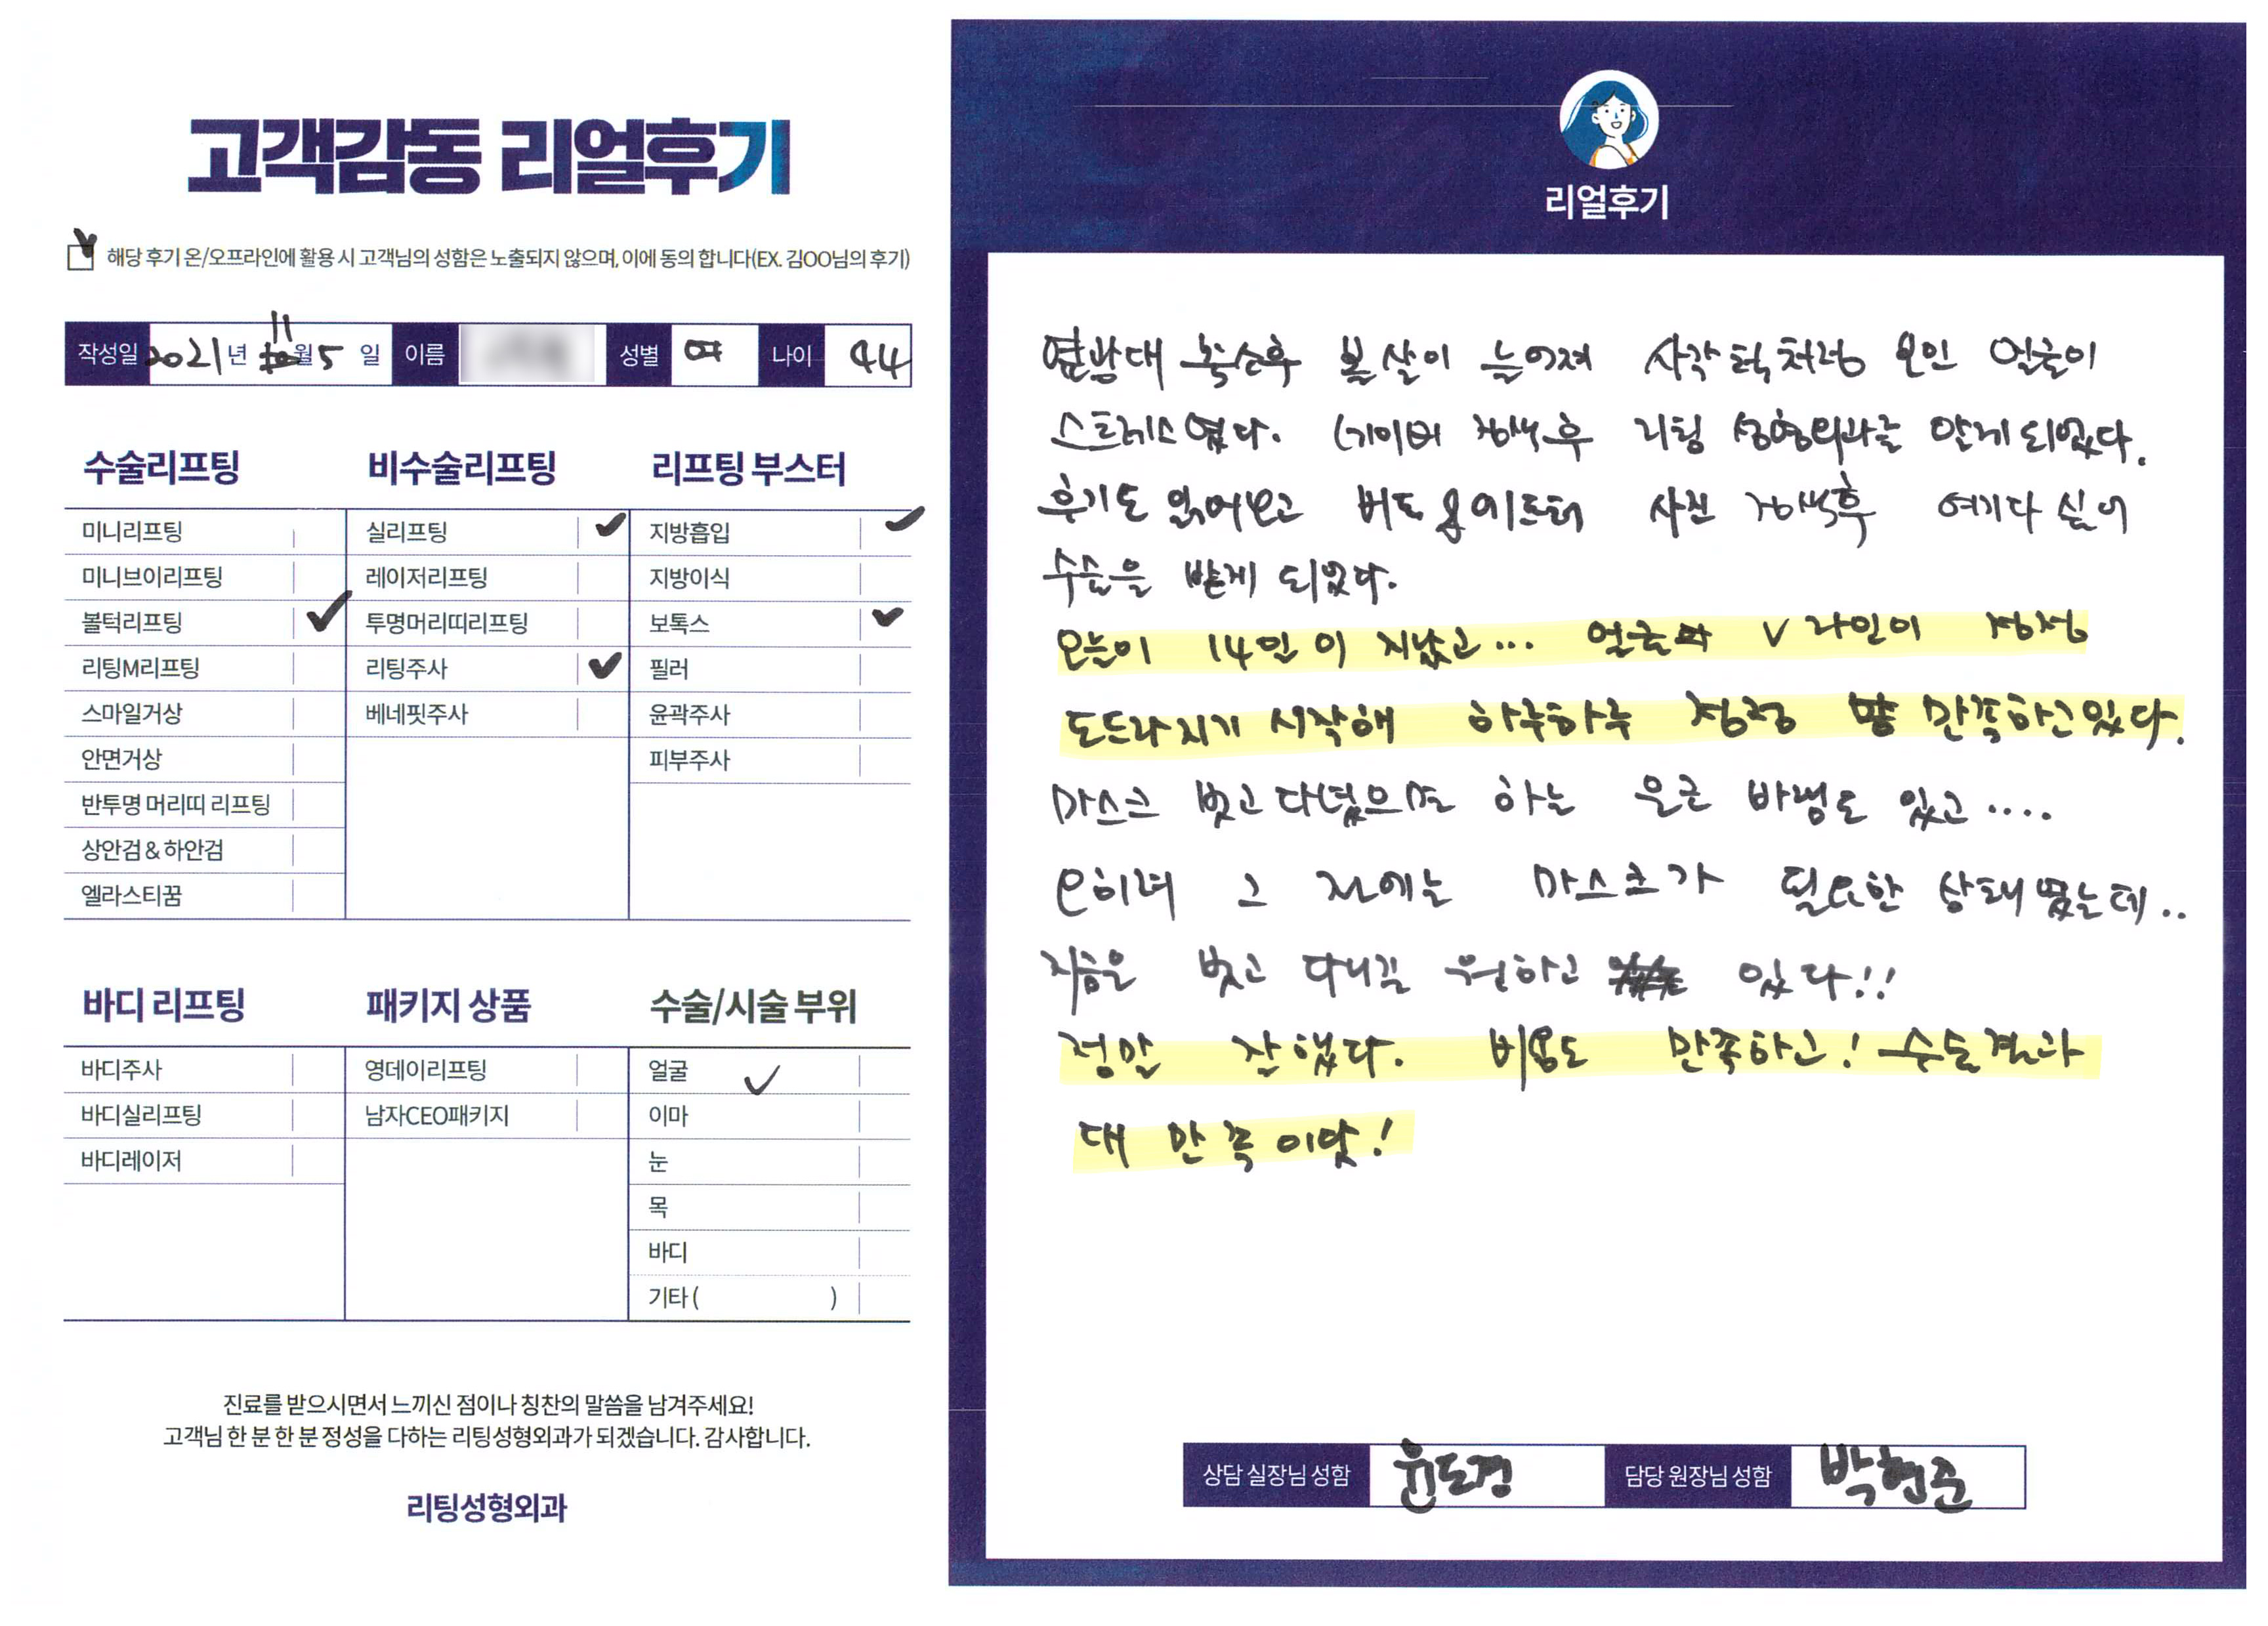 고객감동 리얼후기
해당 후기 온/오프라인에 활용 시 고객님의 성함은 노출되지 않으며, 이에 동의 합니다(EX. 김OO님의 후기)
작성일 2021년 11월 5일 이름 성별 여 나이 44
수술리프팅
미니리프팅
미니브이리프팅
볼턱리프팅 ✓
리팅M리프팅
스마일거상
안면거상
반투명 머리띠 리프팅
상안검 & 하안검
엘라스티꿈
비수술리프팅
실리프팅 ✓
레이저리프팅
투명머리띠리프팅
리팅주사 ✓
베네핏주사
리프팅 부스터
지방흡입 ✓
지방이식
보톡스 ✓
필러
윤곽주사
피부주사
바디 리프팅
바디주사
바디실리프팅
바디레이저
패키지 상품
영데이리프팅
남자CEO패키지
수술/시술 부위
얼굴 ✓
이마
눈
목
바디
기타 ( )
진료를 받으시면서 느끼신 점이나 칭찬의 말씀을 남겨주세요!
고객님 한 분 한 분 정성을 다하는 리팅성형외과가 되겠습니다. 감사합니다.
리팅성형외과
리얼후기
옆광대 축소후 볼살이 늘어져 사각턱처럼 보인 얼굴이
스트레스였다. 네이버 검색후 리팅 성형외과를 알게되었다.
후기도 읽어보고 비포 애프터 사진 검색후 여기다 싶어
수술을 받게 되었다.
오늘이 14일이 지났고... 얼굴 V라인이 점점
도드라지기 시작해 하루하루 점점 만족하고있다.
마스크 벗고 다녔으면 하는 은근 바램도 있고....
오히려 그 전에는 마스크가 필요한 상태였는데..
지금은 벗고 다니길 원하고 있다!!
정말 잘했다. 비용도 만족하고! 수술결과
대 만족이얏!
상담 실장님 성함 윤도경 담당 원장님 성함 박현준